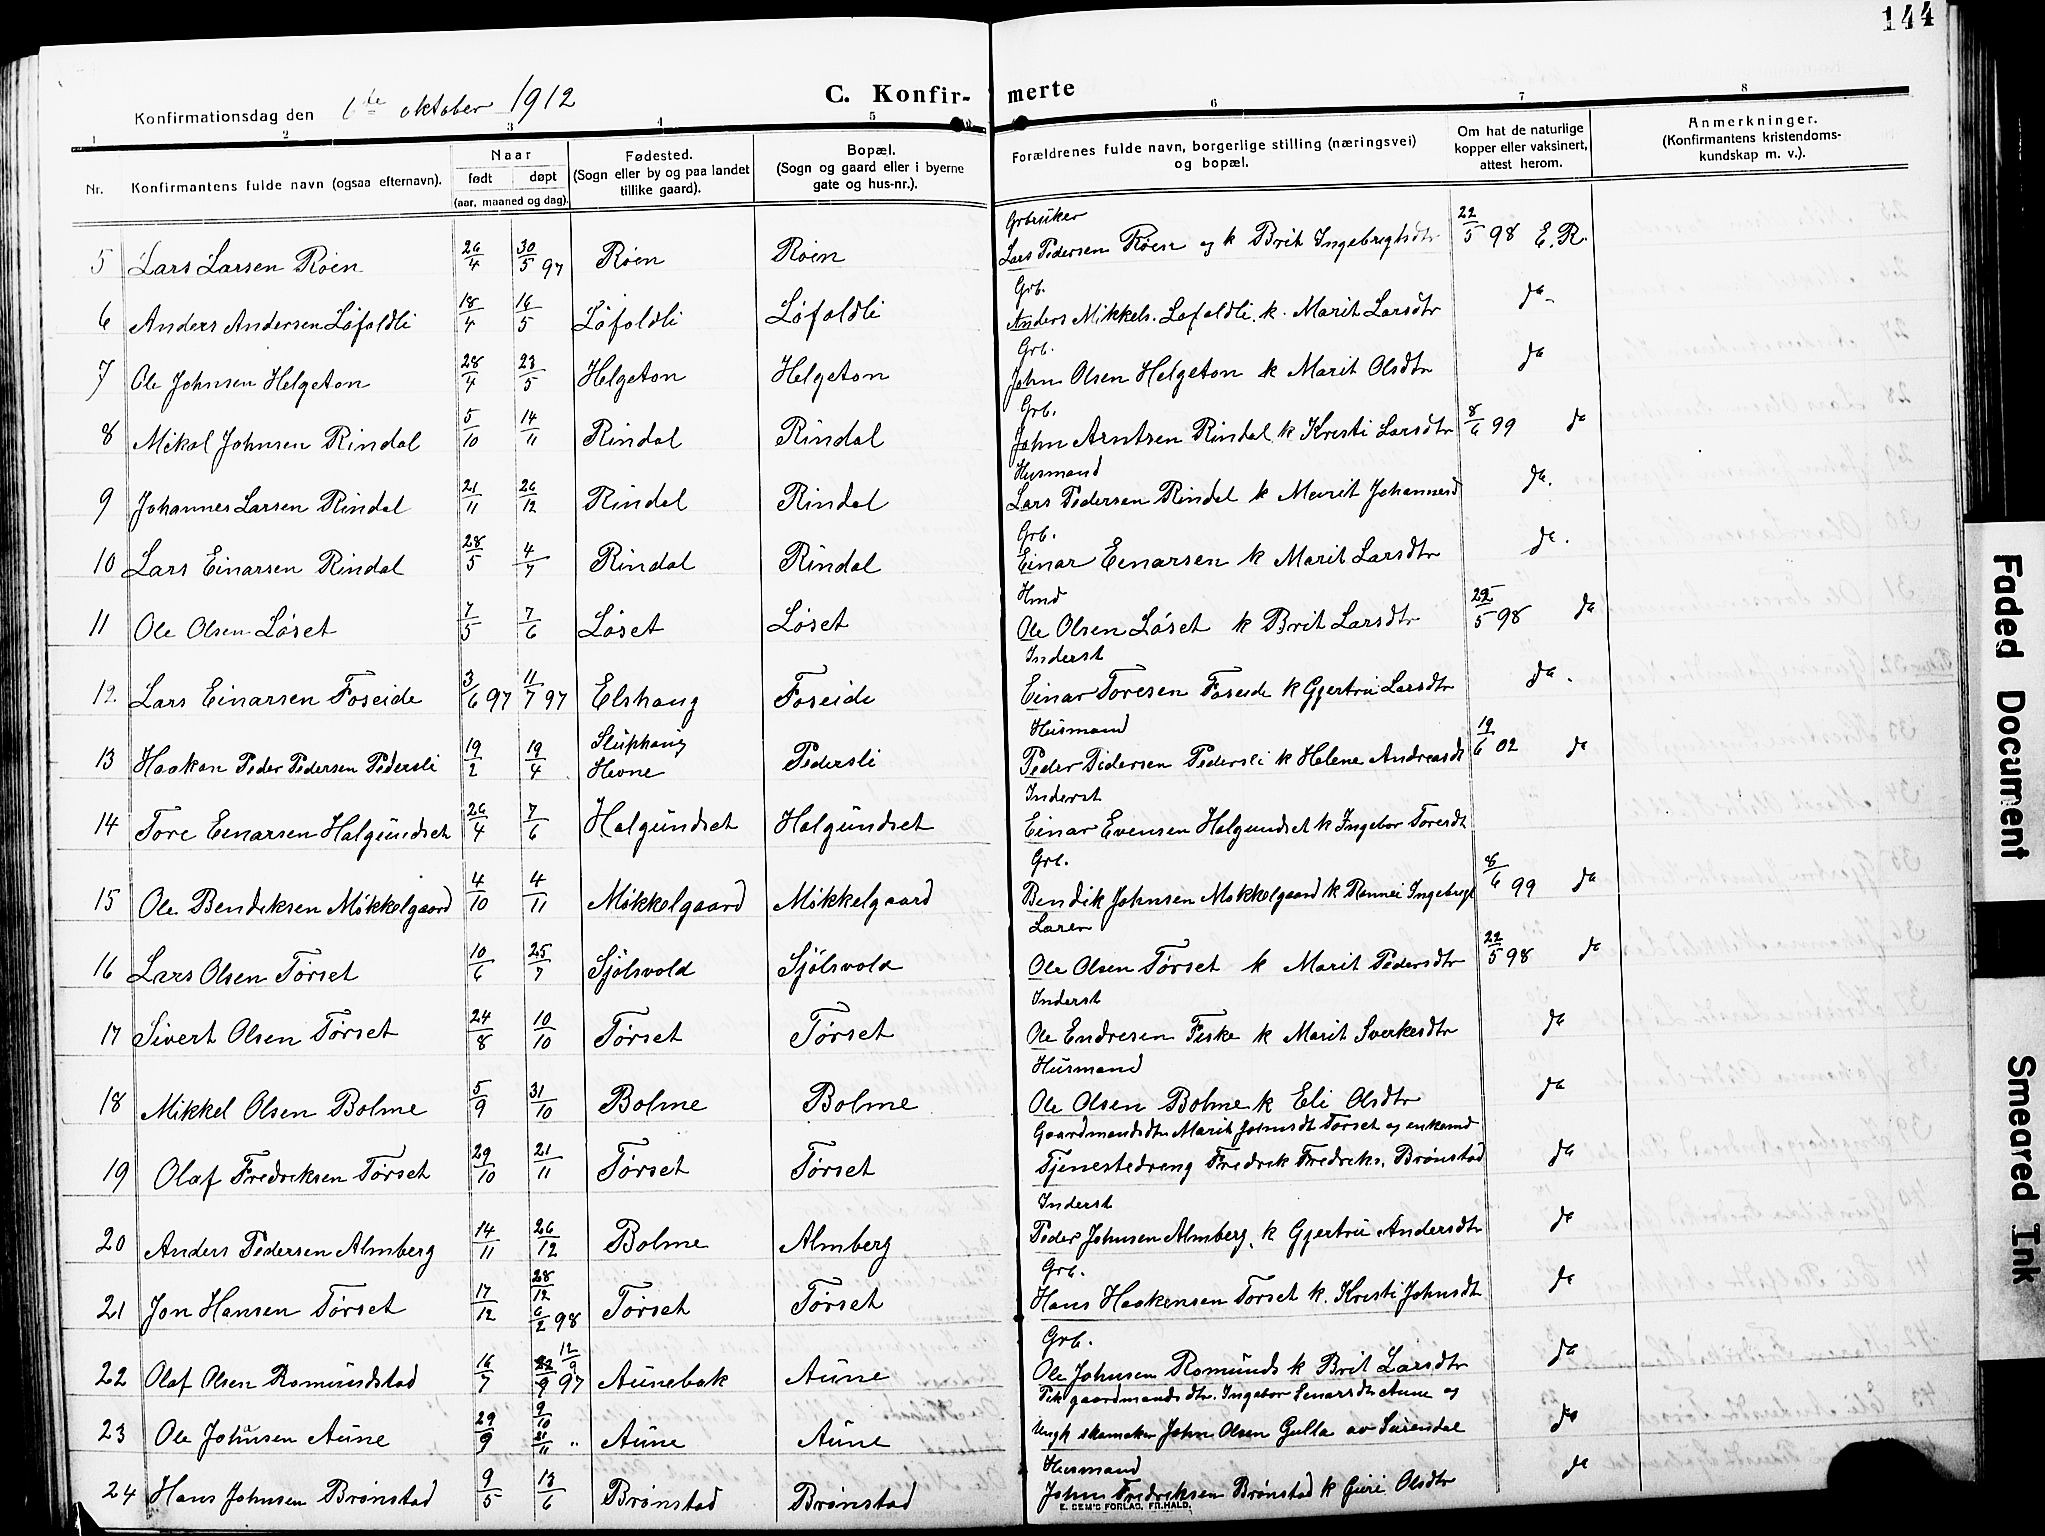 144
Konfirmationsdag den 6te oktober 1912
C. Konfir- merte
1 2 3 4 5 6 7 8
Nr.
Konfirmantens fulde navn (ogsaa efternavn).
Naar
født døpt
(aar, maaned og dag).
Fødested.
(Sogn eller by og paa landet
tillike gaard).
Bopæl.
(Sogn og gaard eller i byerne
gate og hus-nr.).
Forældrenes fulde navn, borgerlige stilling (næringsvei)
og bopæl.
Om hat de naturlige
kopper eller vaksinert,
attest herom.
Anmerkninger.
(Konfirmantens kristendoms-
kundskap m. v.).
Grbruker
5 Lars Larsen Røen 26/4 30/5 97 Røen Røen Lars Pedersen Røen og k Brit Ingebrigtsdtr 22/5 98 E. R.
Grb.
6 Anders Andersen Løfaldli 18/4 16/5 Løfaldli Løfaldli Anders Mikkels. Løfaldli. k. Marit Larsdtr do
Grb.
7 Ole Johnsen Helgeton 28/4 23/5 Helgeton Helgeton John Olsen Helgeton k Marit Olsdtr do
Grb.
8 Mikal Johnsen Rindal 5/10 14/11 Rindal Rindal John Arntsen Rindal k Kristi Larsdtr 8/6 99 do
Husmand
9 Johannes Larsen Rindal 21/11 26/12 Rindal Rindal Lars Pedersen Rindal k Marit Johannesd do.
Grb.
10 Lars Einarsen Rindal 28/5 4/7 Rindal Rindal Einar Einarsen k Marit Larsdtr do.
Hmd
11 Ole Olsen Løset 7/5 7/6 Løset Løset Ole Olsen Løset k Brit Larsdtr 22/5 98 do
Inderst
12 Lars Einarsen Foseide 3/6 97 11/7 97 Elshaug Foseide Einar Toresen Foseide k Gjertru Larsdtr do.
Husmand
13 Haakon Peder Pedersen Pedersli 19/2 19/4 Sluphaug Hevne Pedersli Peder Pedersen Pedersli k Helene Andreasdt 19/6 02 do
Inderst
14 Tore Einarsen Halgundset 26/4 7/6 Halgundset Halgundset Einar Evensen Halgundset k Ingebor Toresdt
Grb.
15 Ole Bendiksen Møkkelgaard 4/10 4/11 Møkkelgaard Møkkelgaard Bendik Johnsen Møkkelgaard k Rannei Ingebrigt 8/6 99 do
Lærer
16 Lars Olsen Tørset 10/6 25/7 Sjølsvold Sjølsvold Ole Olsen Tørset k Marit Pedersdtr 22/5 98 do
Inderst
17 Sivert Olsen Tørset 24/8 10/10 Tørset Tørset Ole Endresen Fiske k Marit Sverkesdtr do
Husmand
18 Mikkel Olsen Bolme 5/9 31/10 Bolme Bolme Ole Olsen Bolme k Eli Olsdtr do
Gaardmandsdtr Marit Johnsdt Tørset og enkemd
19 Olaf Fredriksen Tørset 29/10 21/11 Tørset Tørset Tjenestedreng Fredrik Fredriks. Brønstad do
Inderst
20 Anders Pedersen Almberg 14/11 26/12 Bolme Almberg Peder Johnsen Almberg, k Gjertru Andersdtr do
Grb.
21 Jon Hansen Tørset 17/12 28/12 6/2 98 Tørset Tørset Hans Haakensen Tørset k. Kristi Johnsdt do
Grb.
22 Olaf Olsen Romundstad 16/7 12/9 97 Aunebak Aune Ole Johnsen Romunds k Brit Larsdtr do
Pik gaardmandsdtr. Ingebor Einarsdtr Aune og
23 Ole Johnsen Aune 29/9 9/10 21/11 " Aune Aune Ungk skomaker John Olsen Gulla av Surendal do
Husmand
24 Hans Johnsen Brønstad 9/5 13/6 Brønstad Brønstad John Fredriksen Brønstad k Guri Olsdtr do
E. SEM'S FORLAG, FR.HALD.
Faded Document
Smeared Ink